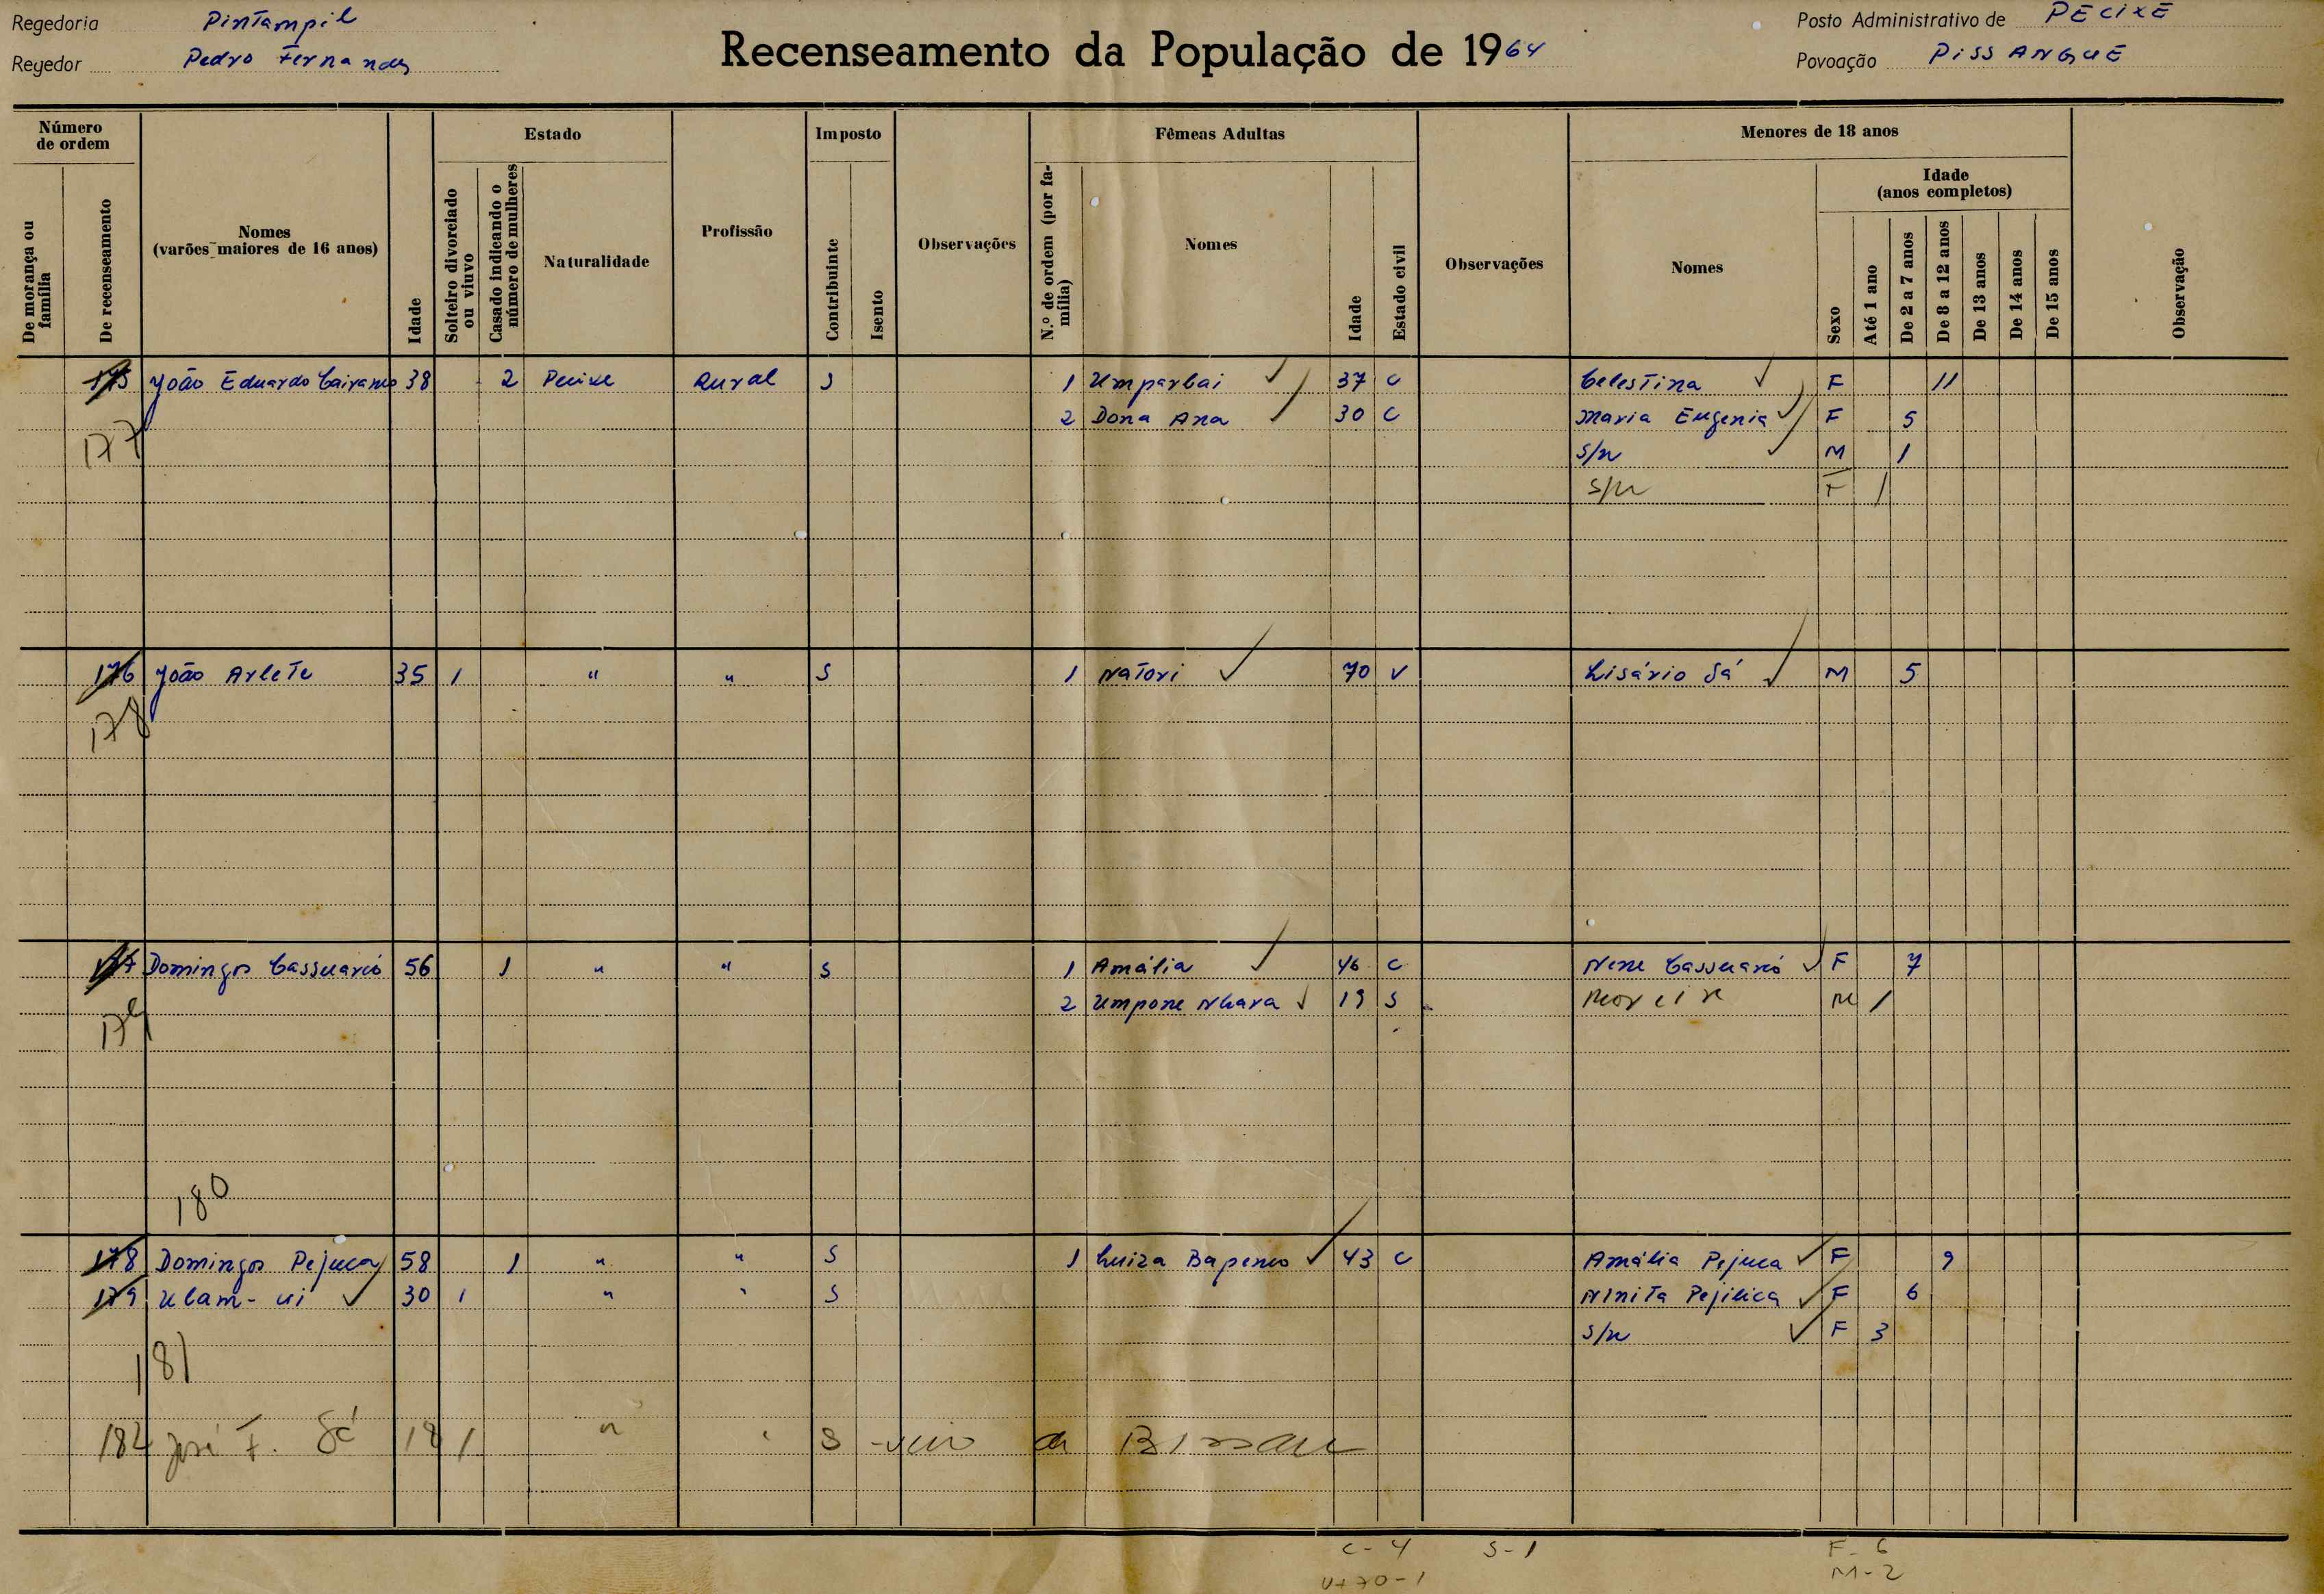 Regedoria Pintampil
Regedor Pedro Fernandes
Recenseamento da População de 1964
Posto Administrativo de PECIXE
Povoação PISSANGUE
Número de ordem
De morança ou família
De recenseamento
Nomes (varões maiores de 16 anos)
Idade
Estado
Solteiro divorciado ou viuvo
Casado indicando o número de mulheres
Naturalidade
Profissão
Imposto
Contribuinte
Isento
Observações
Fêmeas Adultas
N.º de ordem (por família)
Nomes
Idade
Estado civil
Observações
Menores de 18 anos
Nomes
Idade (anos completos)
Sexo
Até 1 ano
De 2 a 7 anos
De 8 a 12 anos
De 13 anos
De 14 anos
De 15 anos
Observação
175 João Eduardo 38 2 Pecixe Rural S 1 Umparbai 37 C Celestina F 11
2 Dona Ana 30 C Maria Eugenia F 5
177 S/n M 1
S/n F 1
176 João Arlete 35 1 " " S 1 Natori 70 V Lisário Sá M 5
178
177 Domingos Cassuarió 56 1 " " S 1 Amália 46 C Nene Cassuarió F 7
2 Umpone Nhara 19 S M 1
179
180
178 Domingos Pejuca 58 1 " " S 1 Luiza 43 C Amália Pejuca F 9
179 Ulam-ui 30 1 " " S Ninita F 6
S/n F 3
181
182 José F. Sá 18 1 " " S - veio de Bissau
C-4 S-1 F-6
V+70-1 M-2